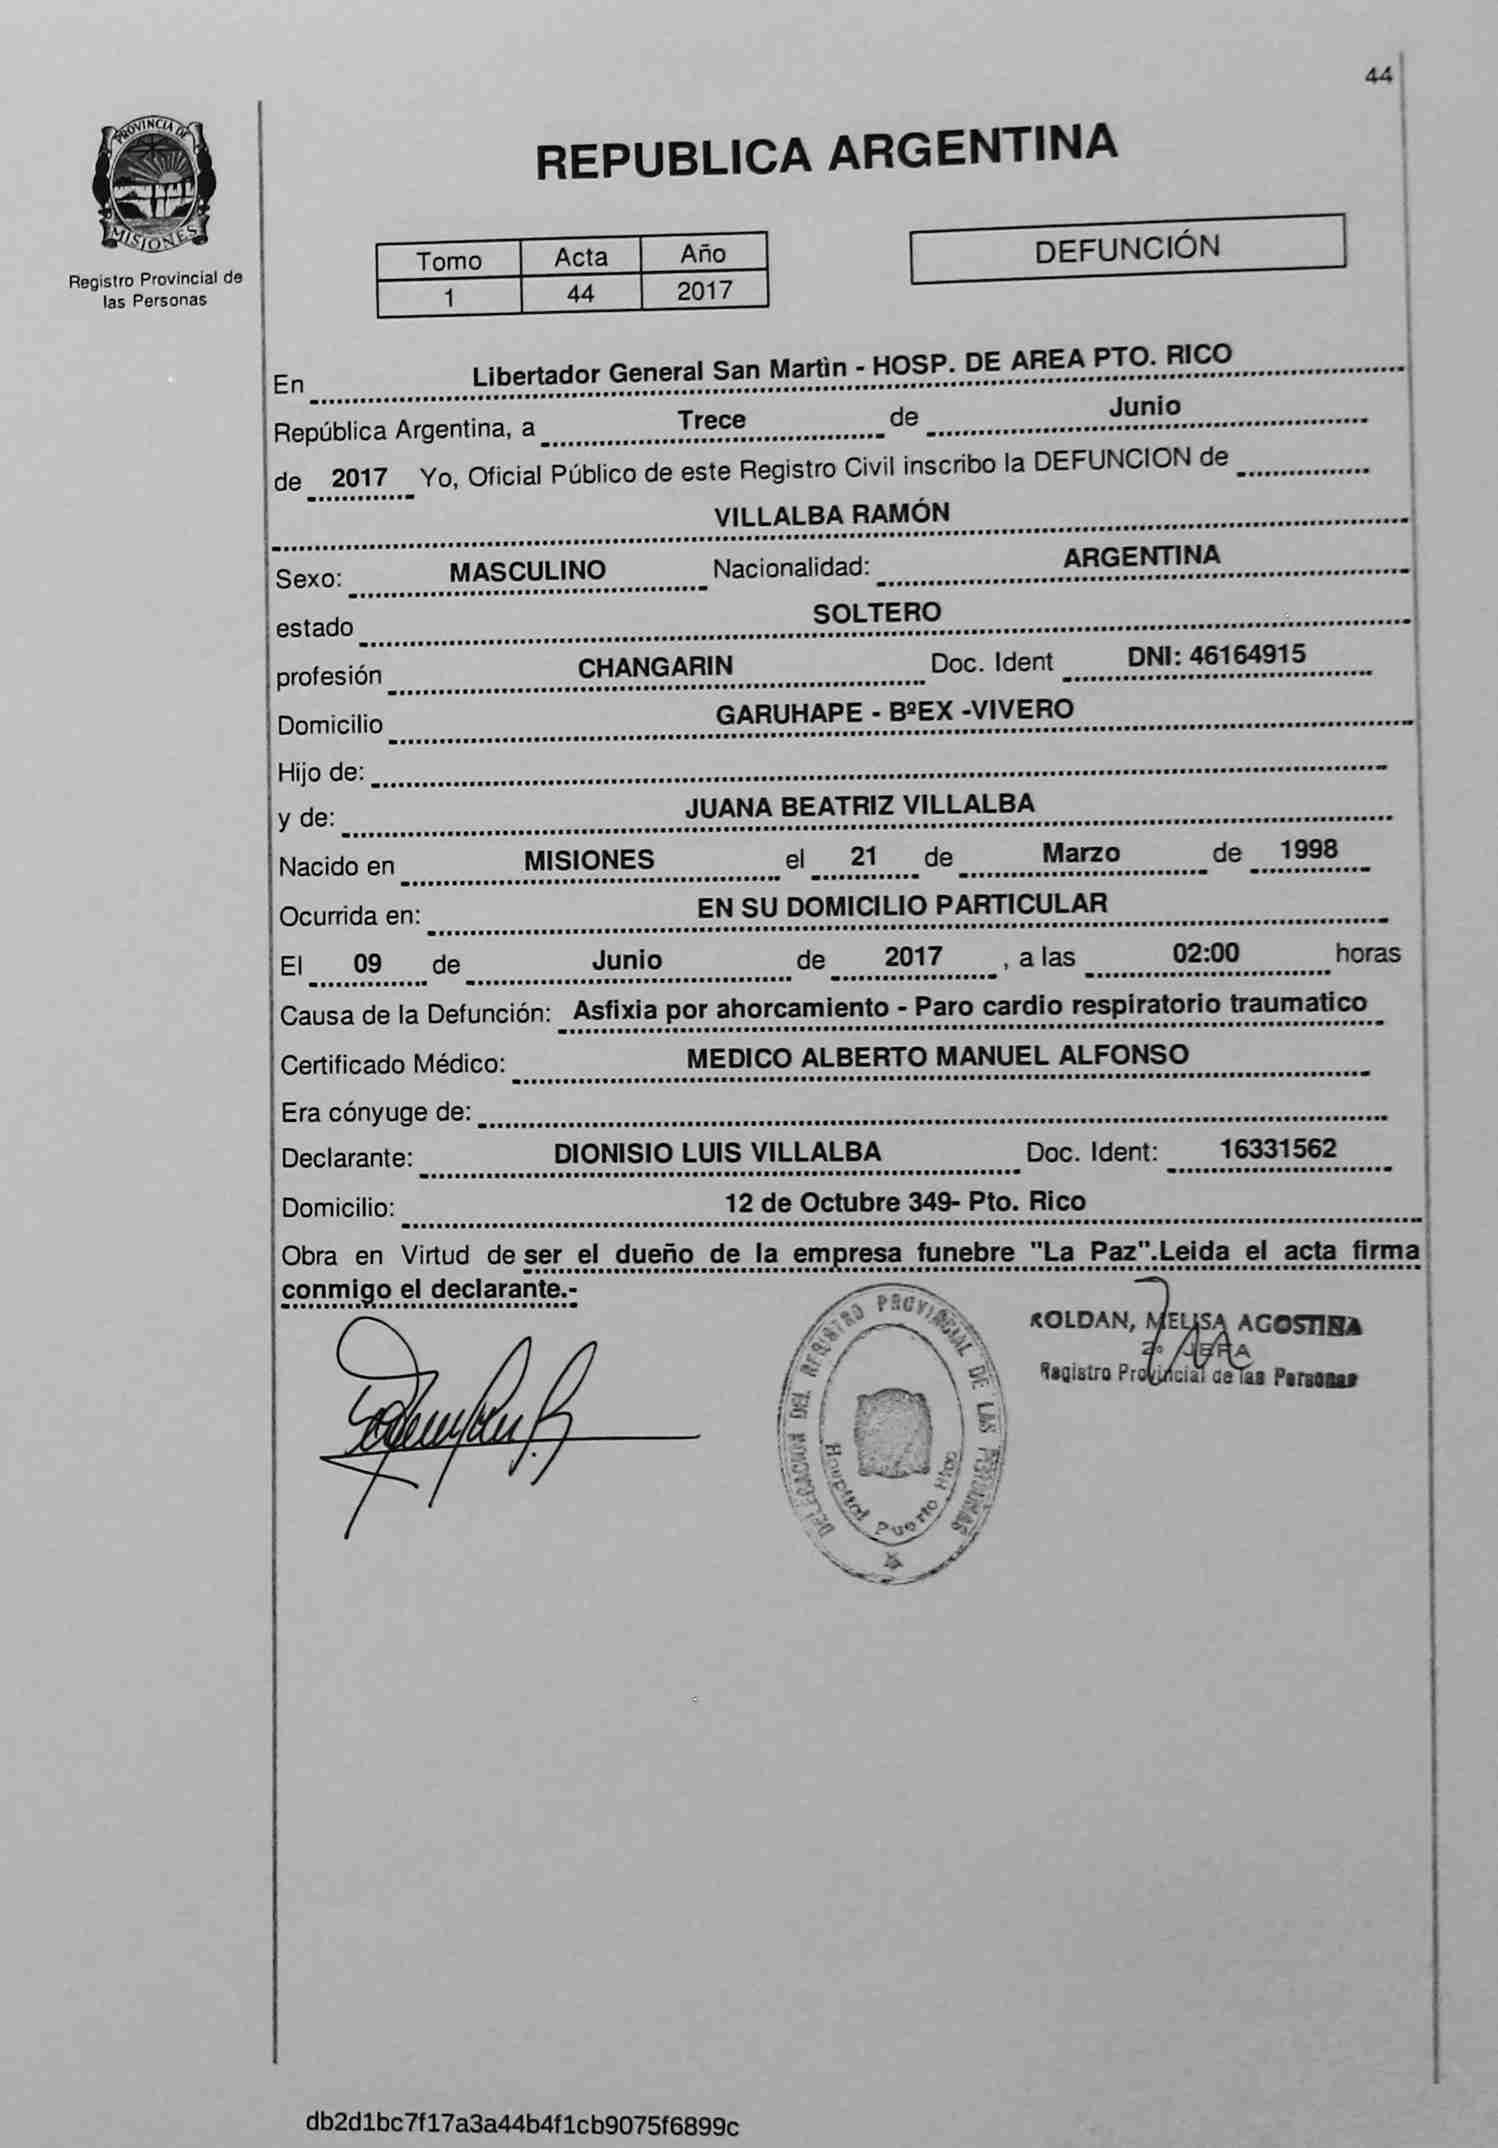 44
PROVINCIA DE
MISIONES
Registro Provincial de
las Personas
REPUBLICA ARGENTINA
Tomo Acta Año
1 44 2017
DEFUNCIÓN
En Libertador General San Martìn - HOSP. DE AREA PTO. RICO
República Argentina, a Trece de Junio
de 2017 Yo, Oficial Público de este Registro Civil inscribo la DEFUNCION de
VILLALBA RAMÓN
Sexo: MASCULINO Nacionalidad: ARGENTINA
estado SOLTERO
profesión CHANGARIN Doc. Ident DNI: 46164915
Domicilio GARUHAPE - BºEX -VIVERO
Hijo de:
y de: JUANA BEATRIZ VILLALBA
Nacido en MISIONES el 21 de Marzo de 1998
Ocurrida en: EN SU DOMICILIO PARTICULAR
El 09 de Junio de 2017 , a las 02:00 horas
Causa de la Defunción: Asfixia por ahorcamiento - Paro cardio respiratorio traumatico
Certificado Médico: MEDICO ALBERTO MANUEL ALFONSO
Era cónyuge de:
Declarante: DIONISIO LUIS VILLALBA Doc. Ident: 16331562
Domicilio: 12 de Octubre 349- Pto. Rico
Obra en Virtud de ser el dueño de la empresa funebre "La Paz".Leida el acta firma
conmigo el declarante.-
DELEGACION DEL REGISTRO PROVINCIAL DE LAS PERSONAS
Hospital Puerto Rico
ROLDAN, MELISA AGOSTINA
2º JEFA
Registro Provincial de las Personas
db2d1bc7f17a3a44b4f1cb9075f6899c